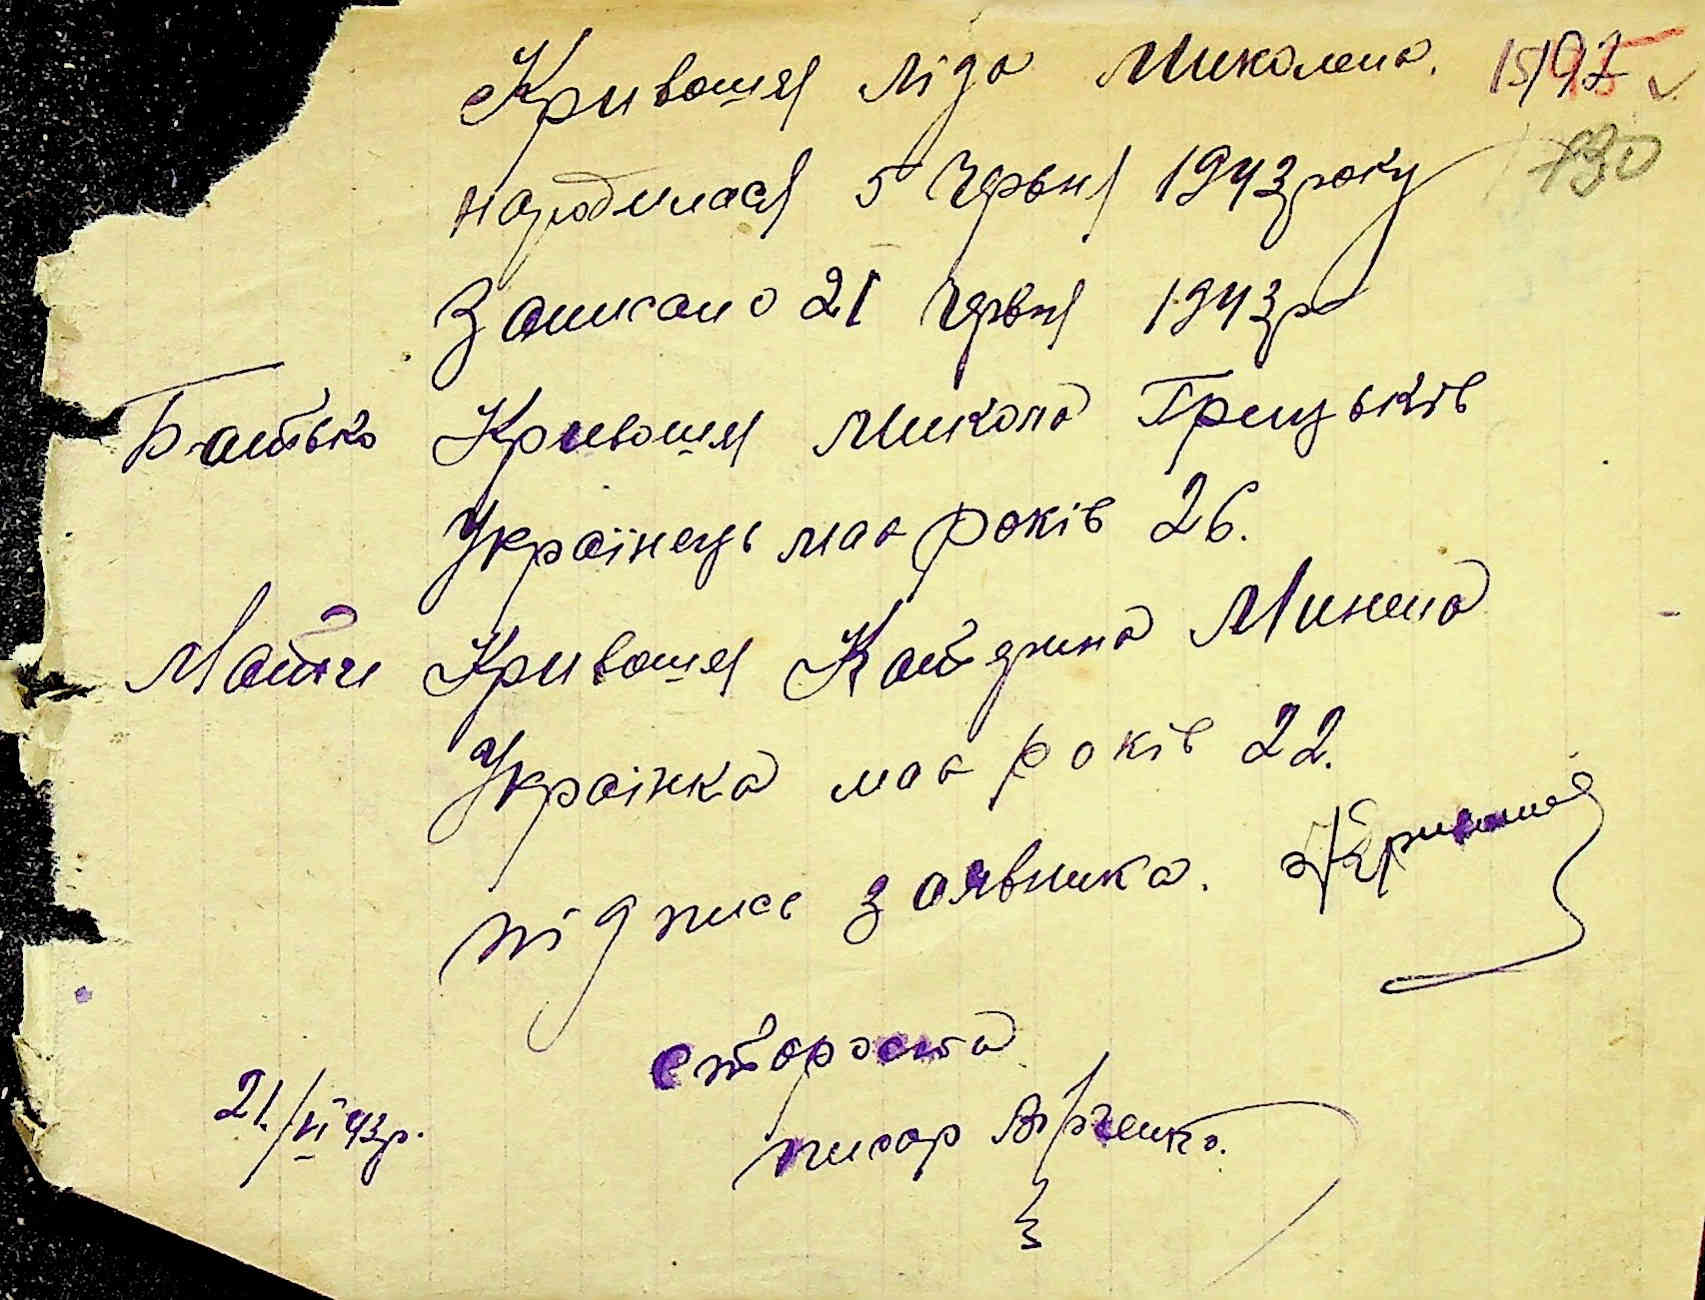 Кривошея Ліда Миколина.
народилася 5 Червня 1943 року
130
Записано 21 Червня 1943 р
Батько Кривошея Микола Грицьків
Українець має років 26.
Мати Кривошея Катерина Минина
Українка має років 22.
підпис заявника. Кривошея
староста
21/VI 43р.
писар